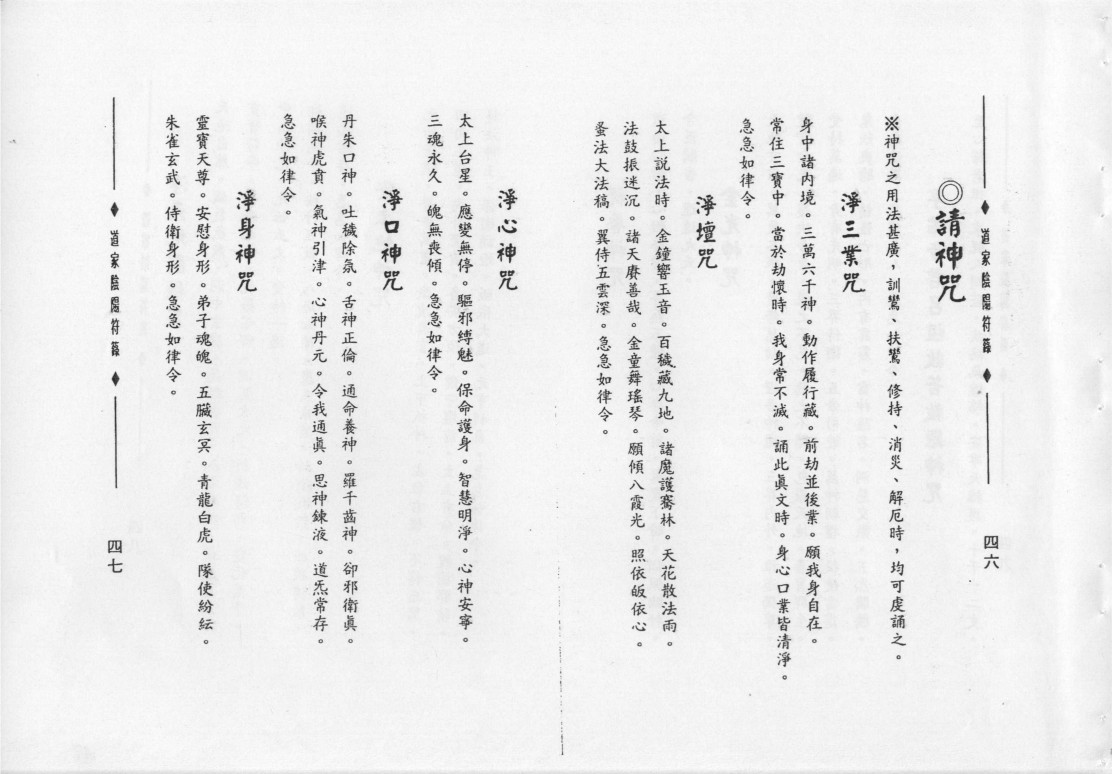 道家陰陽符籙
四六
◎請神咒
※神咒之用法甚廣，訓鸞、扶鸞、修持、消災、解厄時，均可虔誦之。
淨三業咒
身中諸內境。三萬六千神。動作履行藏。前劫並後業。願我身自在。
常住三寶中。當於劫懷時。我身常不滅。誦此眞文時。身心口業皆清淨。
急急如律令。
淨壇咒
太上説法時。金鐘響玉音。百穢藏九地。諸魔護騫林。天花散法雨。
法鼓振迷沉。諸天賡善哉。金童舞瑤琴。願傾八霞光。照依皈依心。
蚤法大法稿。翼侍五雲深。急急如律令。
淨心神咒
太上台星。應變無停。驅邪縛魅。保命護身。智慧明淨。心神安寧。
三魂永久。魄無喪傾。急急如律令。
淨口神咒
丹朱口神。吐穢除氛。舌神正倫。通命養神。羅千齒神。卻邪衛眞。
喉神虎賁。氣神引津。心神丹元。令我通眞。思神鍊液。道炁常存。
急急如律令。
淨身神咒
靈寶天尊。安慰身形。弟子魂魄。五臟玄冥。青龍白虎。隊使紛紜。
朱雀玄武。侍衛身形。急急如律令。
道家陰陽符籙
四七